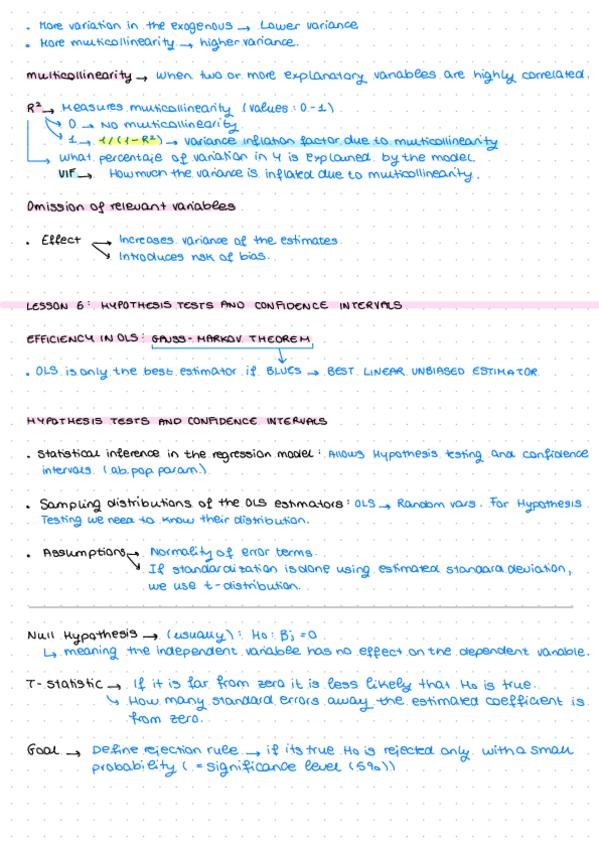 • More variation in the exogenous → Lower variance
• More multicollinearity → higher variance.
multicollinearity → when two or more explanatory variables are highly correlated.
R² → Measures multicollinearity (values: 0-1)
0 → No multicollinearity
1 → 1/(1-R²) → variance inflation factor due to multicollinearity
what percentaje of variation in Y is explained by the model.
VIF → How much the variance is inflated due to multicollinearity.
Omission of relevant variables
• Effect → Increases variance of the estimates
→ Introduces risk of bias.
LESSON 6: HYPOTHESIS TESTS AND CONFIDENCE INTERVALS
EFFICIENCY IN OLS: GAUSS-MARKOV THEOREM
• OLS is only the best estimator if BLUES → BEST LINEAR UNBIASED ESTIMATOR
HYPOTHESIS TESTS AND CONFIDENCE INTERVALS
• Statistical inference in the regression model: Allows Hypothesis testing and confidence
intervals. (ab. pop. param.)
• Sampling distributions of the OLS estimators: OLS → Random vars. For Hypothesis
Testing we need to know their distribution.
• Assumptions → Normality of error terms.
→ If standardization is done using estimated standard deviation,
we use t-distribution.
Null Hypothesis → (usually): H₀: βⱼ = 0
↳ meaning the independent variable has no effect on the dependent variable.
T-statistic → If it is far from zero it is less likely that H₀ is true.
↳ How many standard errors away the estimated coefficient is
from zero.
Goal → Define rejection rule → if its true H₀ is rejected only with a small
probability (= significance level (5%))